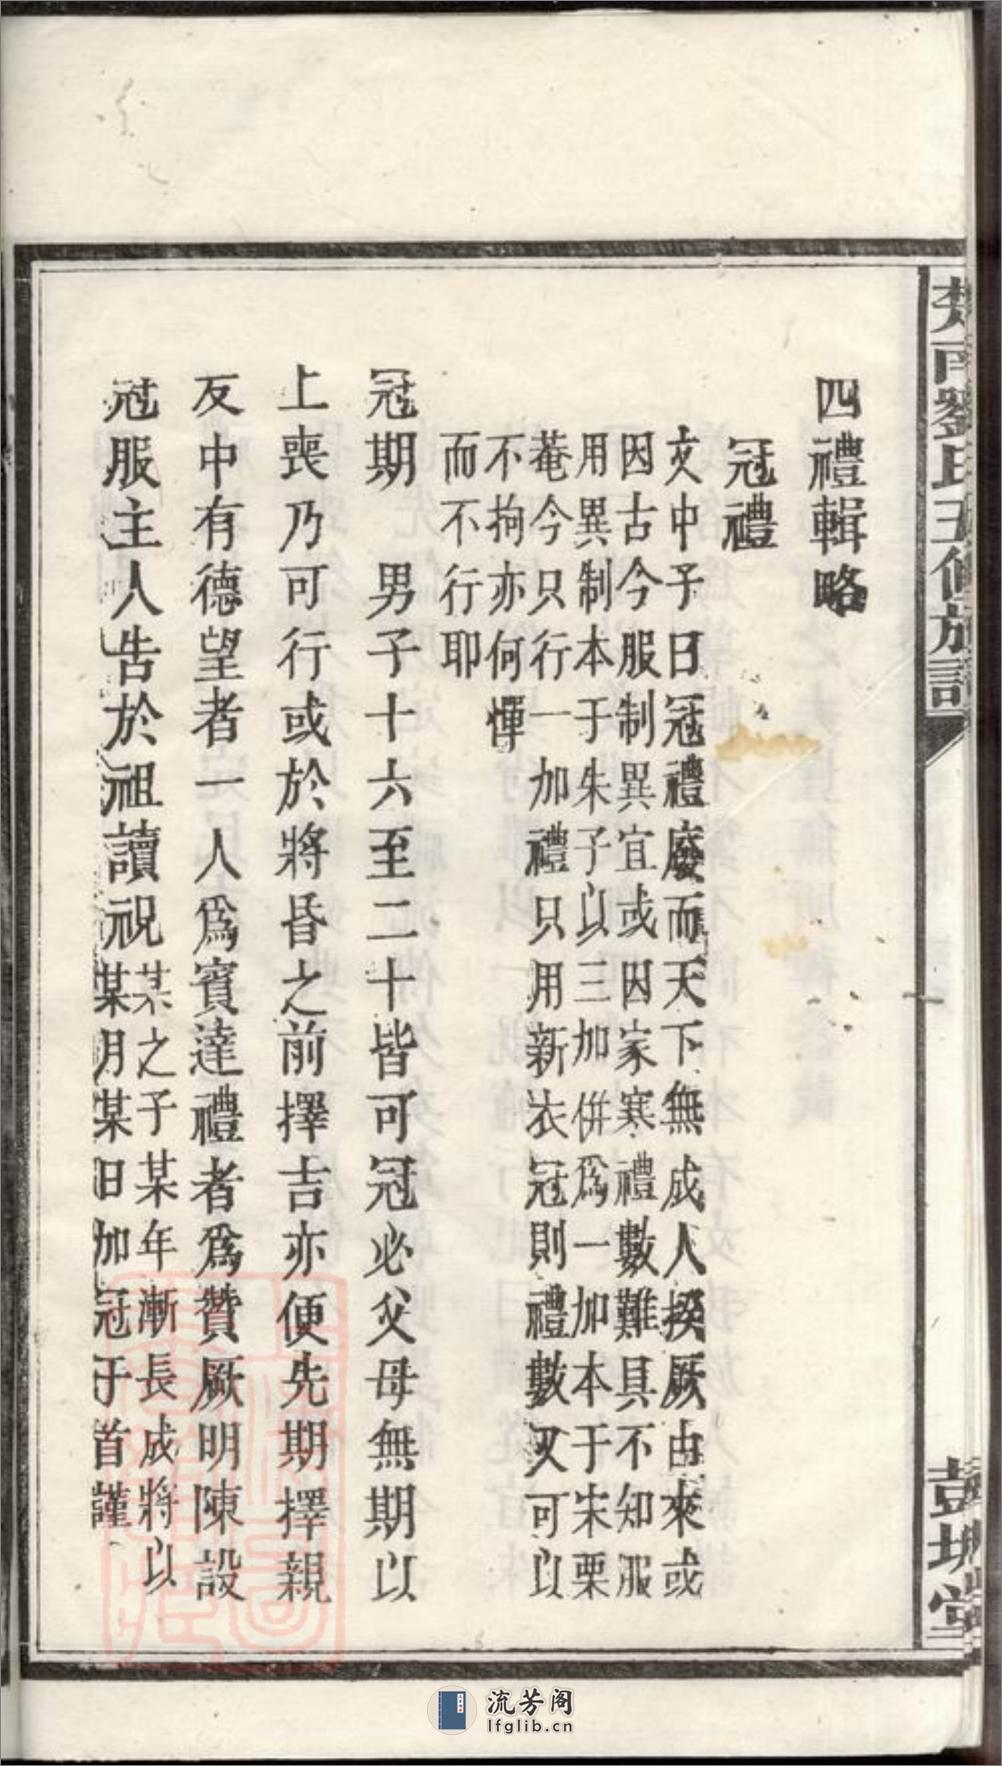 四禮輯略
冠禮
文中子曰冠禮廢而天下無成人揆厥由來或
因古今服制異宜或因家寒禮數難具不知服
用異制本于朱子以三加併爲一加本于宋栗
菴今只行一加禮只用新衣冠則禮數又可以
不拘亦何憚
而不行耶
冠期　男子十六至二十皆可冠必父母無期以
上喪乃可行或於將昏之前擇吉亦便先期擇親
友中有德望者一人爲賓達禮者爲贊厥明陳設
冠服主人告於祖讀祝
某之子某年漸長成將以
某月某日加冠于首謹
南劉氏五修族譜
彭城堂
流芳阁
lfglib.cn